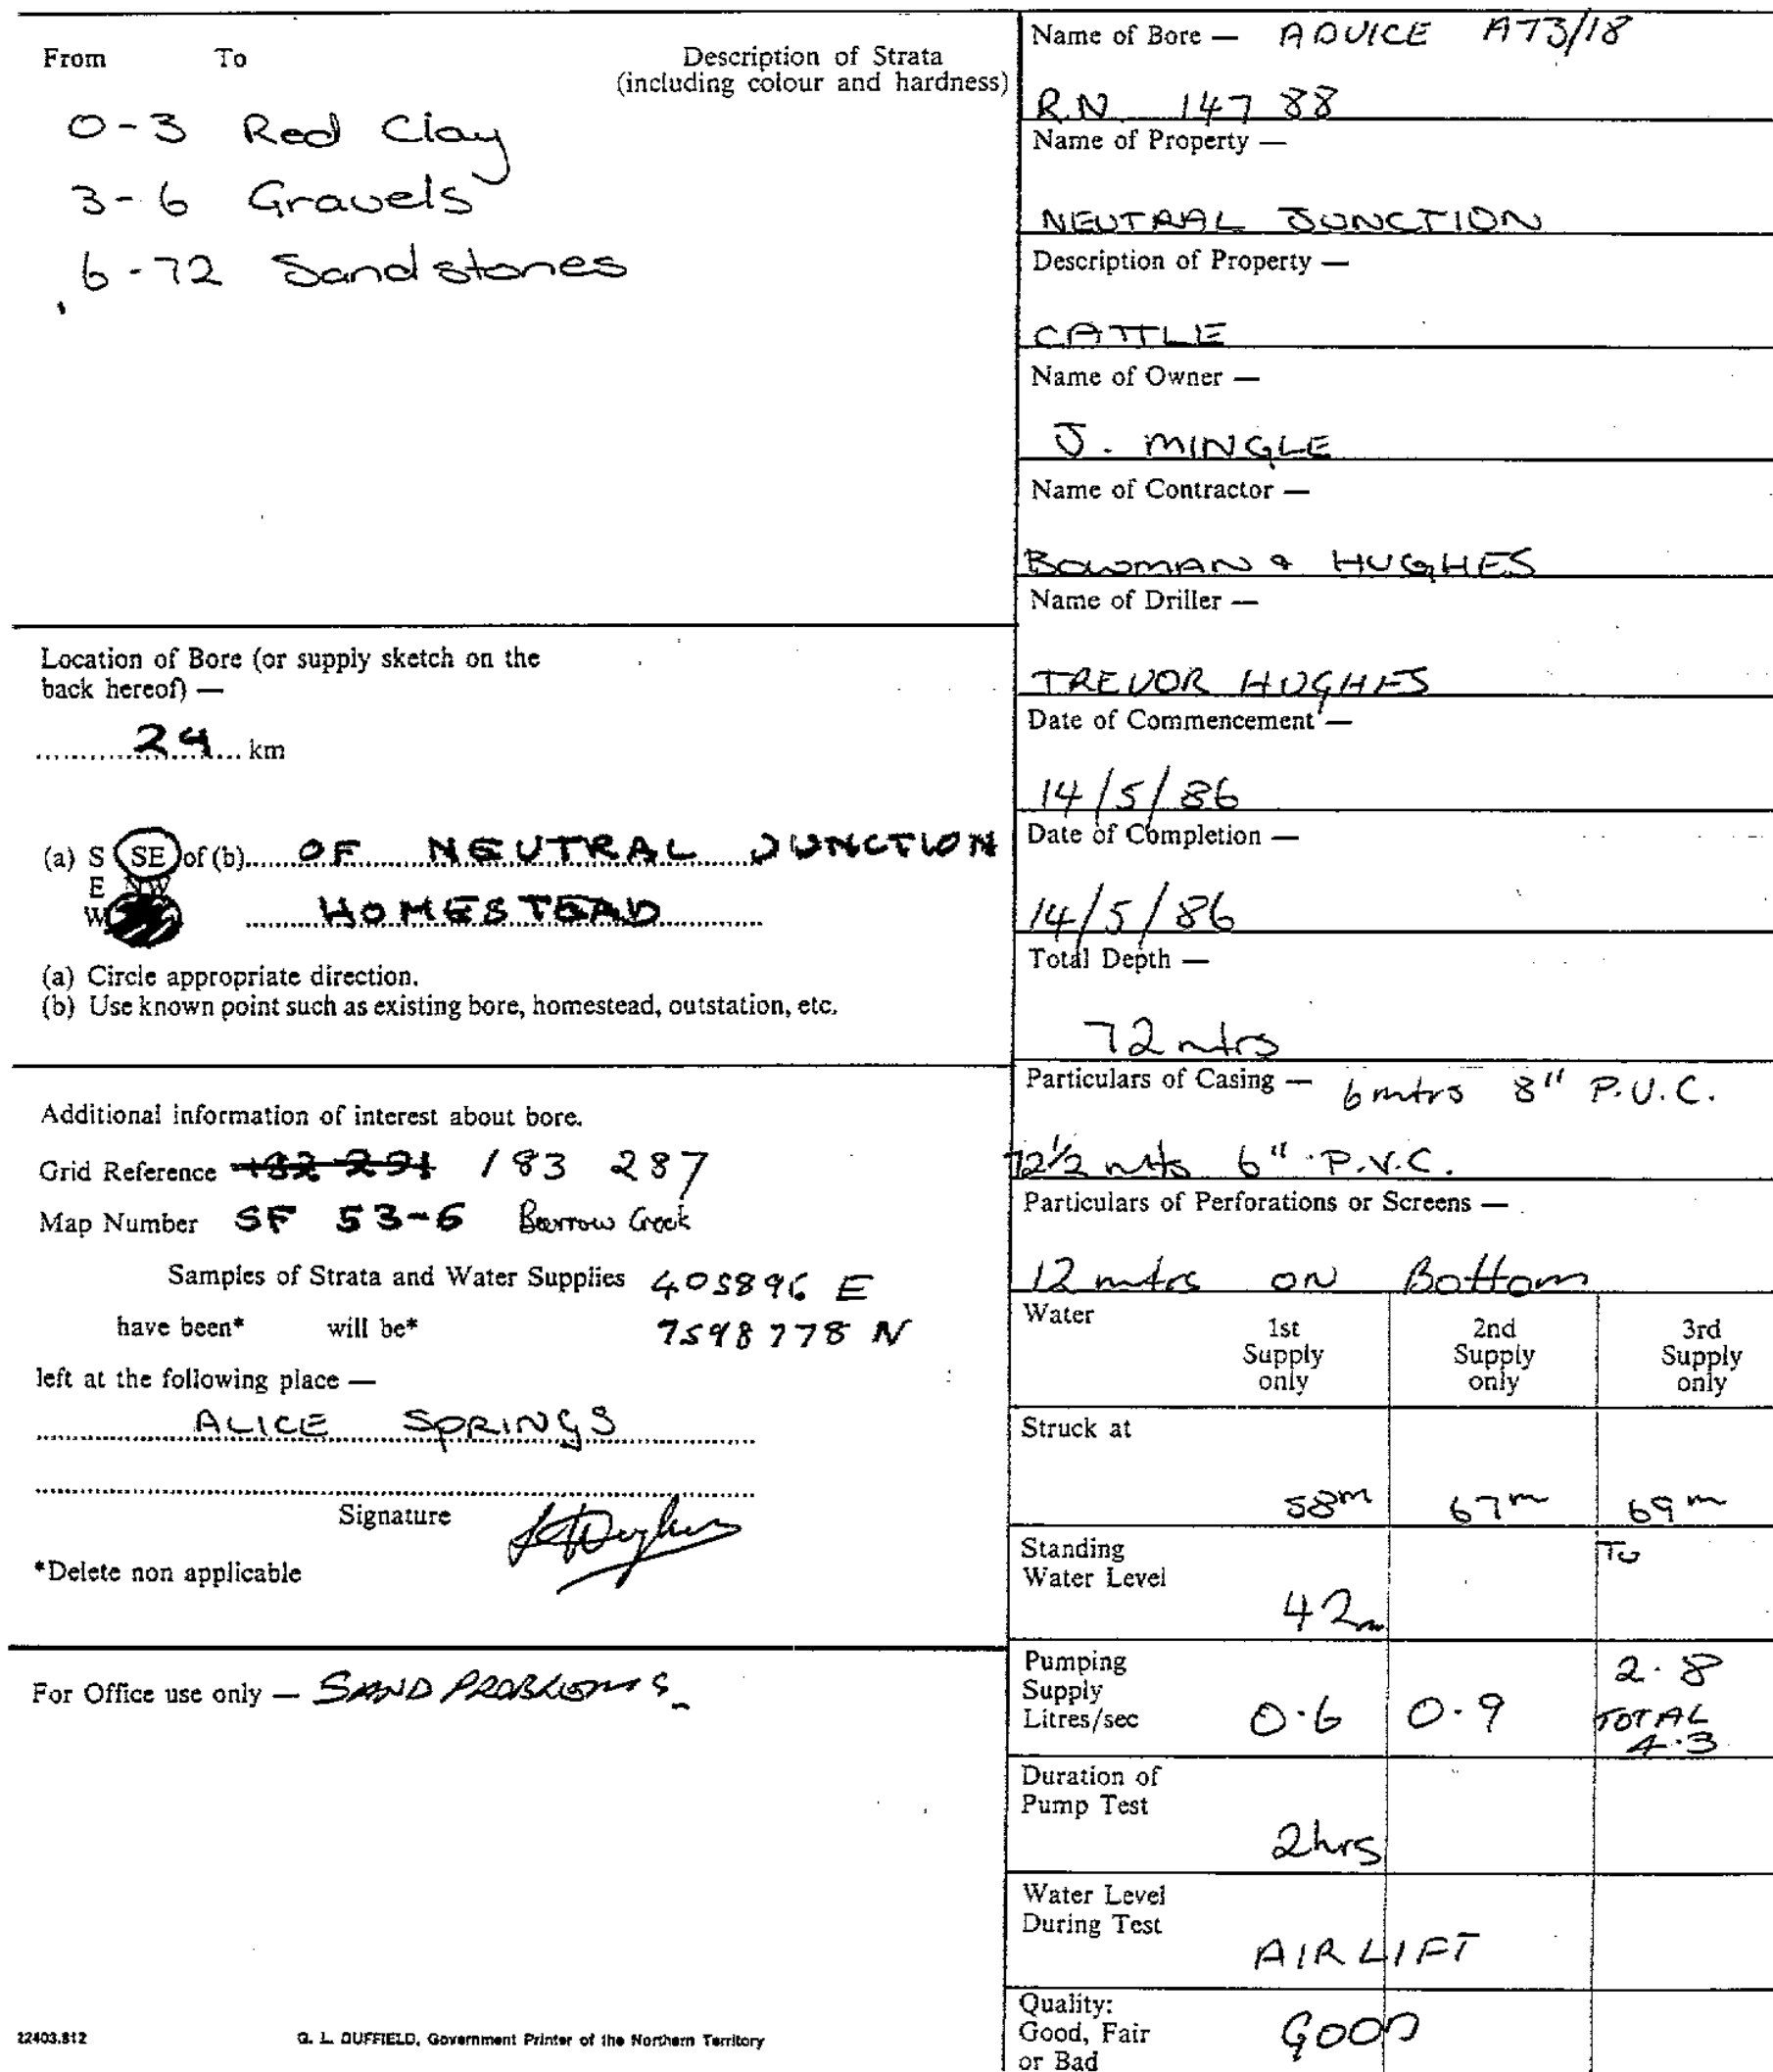 From To Description of Strata
(including colour and hardness)
0-3 Red Clay
3-6 Gravels
6-72 Sandstones
Location of Bore (or supply sketch on the
back hereof) —
24 km
(a) S SE of (b) OF NEUTRAL JUNCTION
E NW
W HOMESTEAD
(a) Circle appropriate direction.
(b) Use known point such as existing bore, homestead, outstation, etc.
Additional information of interest about bore.
Grid Reference 183 287
Map Number SF 53-6 Barrow Creek
Samples of Strata and Water Supplies 405896 E
have been* will be* 7598778 N
left at the following place —
ALICE SPRINGS
Signature
*Delete non applicable
For Office use only — SAND PROBLEMS
22403.812 G. L. DUFFIELD, Government Printer of the Northern Territory
Name of Bore — ADVICE A73/18
R.N. 14788
Name of Property —
NEUTRAL JUNCTION
Description of Property —
CATTLE
Name of Owner —
J. MINGLE
Name of Contractor —
BOWMAN & HUGHES
Name of Driller —
TREVOR HUGHES
Date of Commencement —
14/5/86
Date of Completion —
14/5/86
Total Depth —
72 mtrs
Particulars of Casing — 6 mtrs 8" P.V.C.
72½ mts 6" P.V.C.
Particulars of Perforations or Screens —
12 mtrs ON Bottom
Water 1st Supply only 2nd Supply only 3rd Supply only
Struck at 58m 67m 69m
To
Standing
Water Level 42m
Pumping
Supply
Litres/sec 0.6 0.9 2.8
TOTAL
4.3
Duration of
Pump Test 2hrs
Water Level
During Test AIRLIFT
Quality:
Good, Fair
or Bad GOOD